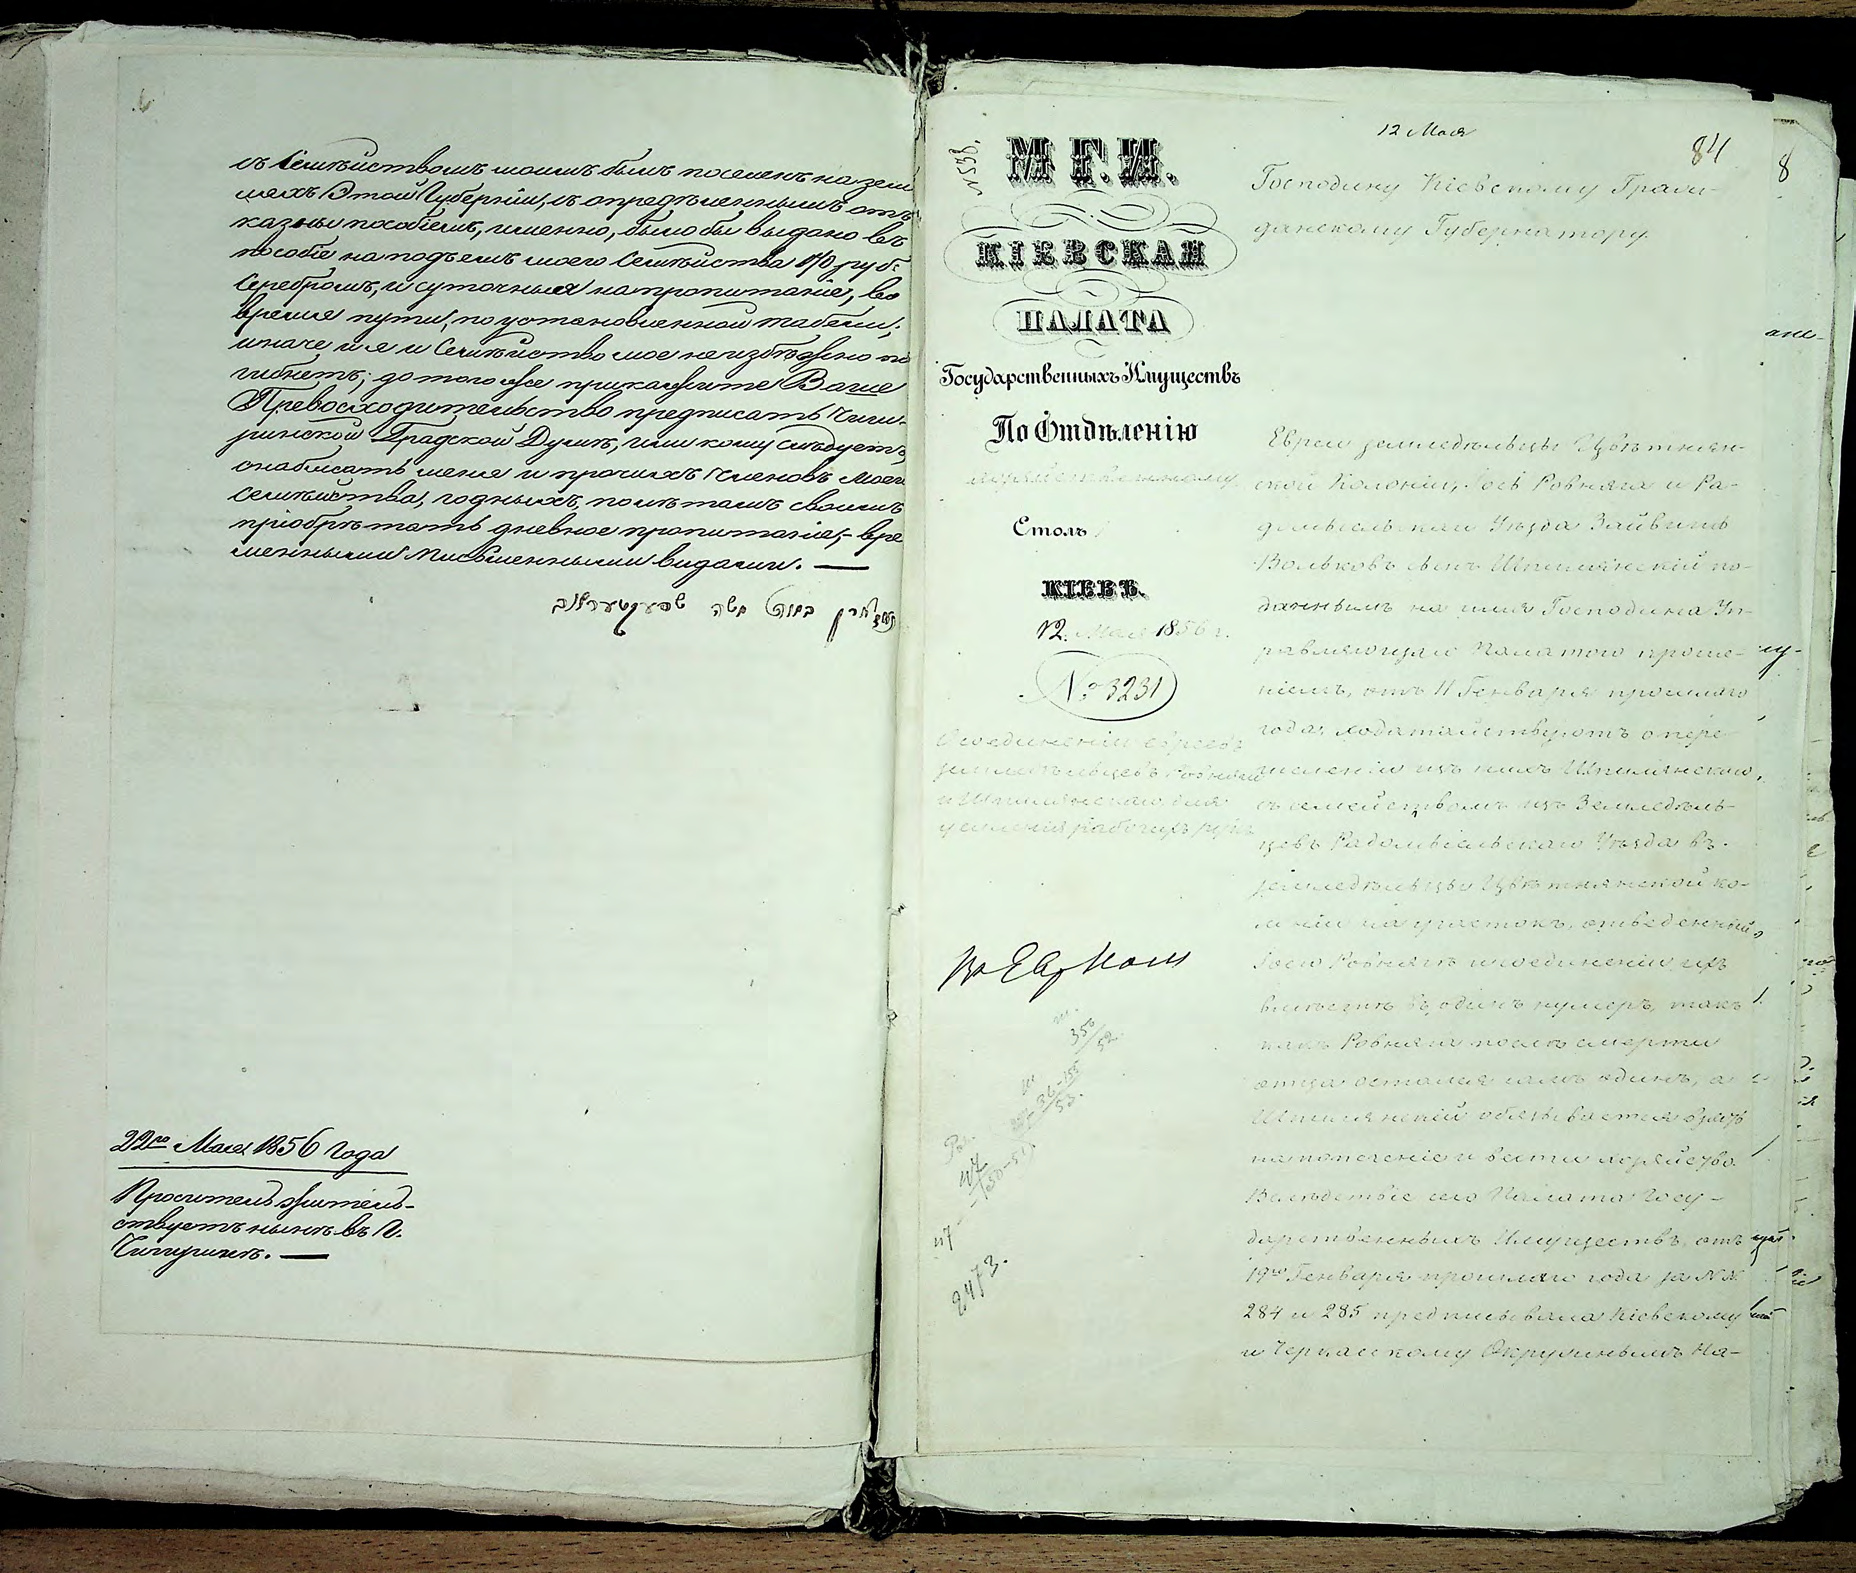 съ Семѣйствомъ моимъ былъ поселенъ на зем
ляхъ Этой Губерніи, съ опредѣленнымъ отъ
казны пособіемъ, именно, было бы выдано въ
пособіе на подъемъ моего Семѣйства 170 руб:
Серебромъ, и суточныя на пропитаніе, во
время пути, по установленной табели;
иначе и я и Семѣйство мое неизбѣжно по
гибнетъ; до того же прикажите Ваше
Превосходительство предписать Чиги-
ринской Градской Думѣ, или кому слѣдуетъ
снабжать меня и прочихъ членовъ моего
семѣйства, годныхъ, по лѣтамъ своимъ
пріобрѣтать дневное пропитаніе,- вре
менными письменными видами. —
22го Мая 1856 Года
Проситель житель-
ствуетъ нынѣ въ Г.
Чигиринѣ. —
12 Мая
84
8
М Г. И.
КІЕВСКАЯ
ПАЛАТА
Государственныхъ Имуществъ
По Отдѣленію
Столъ
КІЕВЪ.
12. Мая 1856 г.
№ 3231
О соединеніи евреевъ
земледѣльцевъ Ровняги
и Шполянскаго для
усиленія рабочихъ рукъ
2473.
Господину Кіевскому Граж-
данскому Губернатору.
Евреи земледѣльцы Цвѣтнян-
ской Колоніи, Іосъ Ровняга и Ра-
домысльскаго Уѣзда Зайвель
Вольковъ сынъ Шполянскій по-
даннымъ на имя Господина Уп-
равляющаго Палатою проше-
ніемъ, отъ 11 Генваря прошлаго
года, ходатайствуютъ о пере
численіи изъ нихъ Шполянскаго,
съ семействомъ изъ Земледѣль-
цевъ Радомысльскаго Уѣзда въ
земледѣльцы Цвѣтнянской ко-
лоніи на участокъ, отведенный
Іосю Ровнягѣ и соединеніи ихъ
вмѣстѣ въ одинъ нумеръ, такъ
какъ Ровняга послѣ смерти
отца остался самъ одинъ, а
Шполянскій обязывается взять
на попеченіе и вести хозяйство.
Вслѣдствіе сего Палата Госу-
дарственныхъ Имуществъ, отъ
19го Генваря прошлаго года за №№
284 и 285 предписывала Кіевскому
и Черкаскому Окружнымъ На-